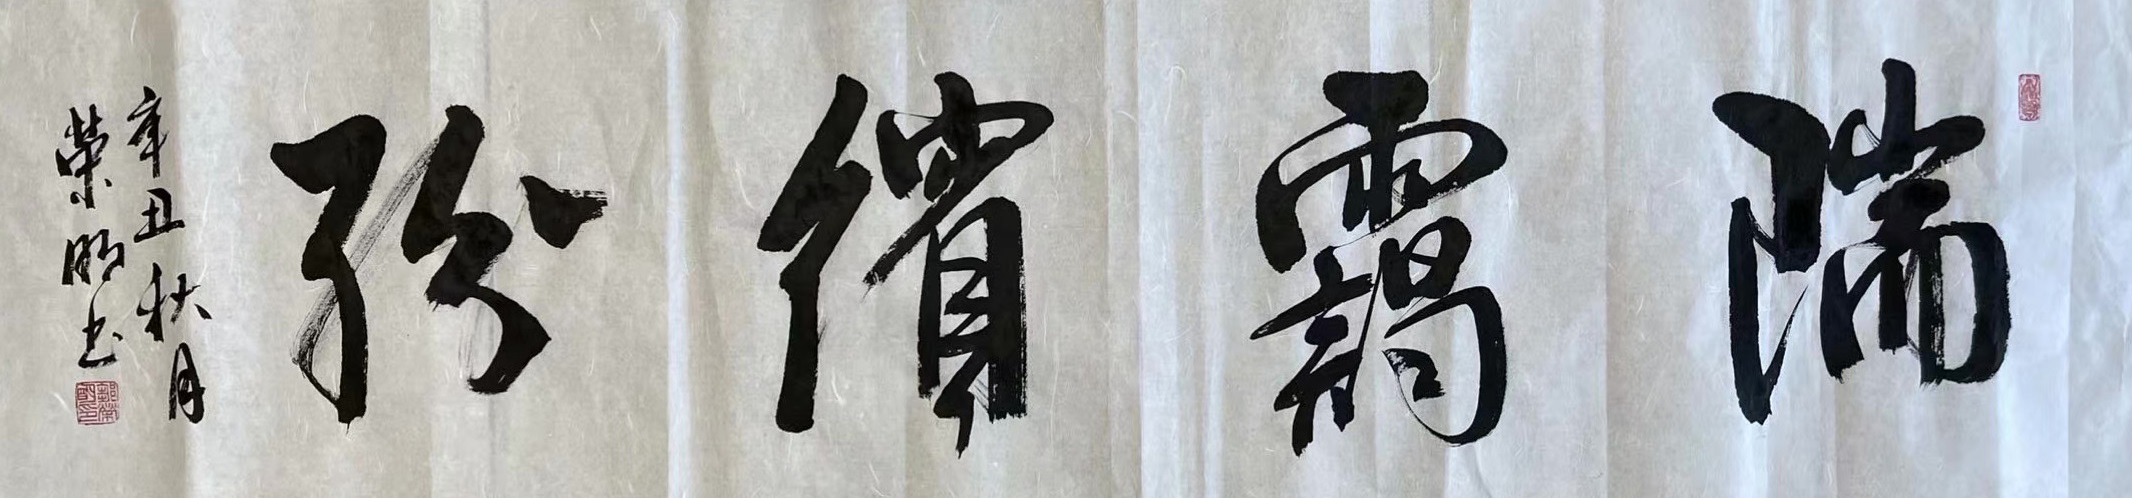 瑞靄繽紛
辛丑秋月
荣明书